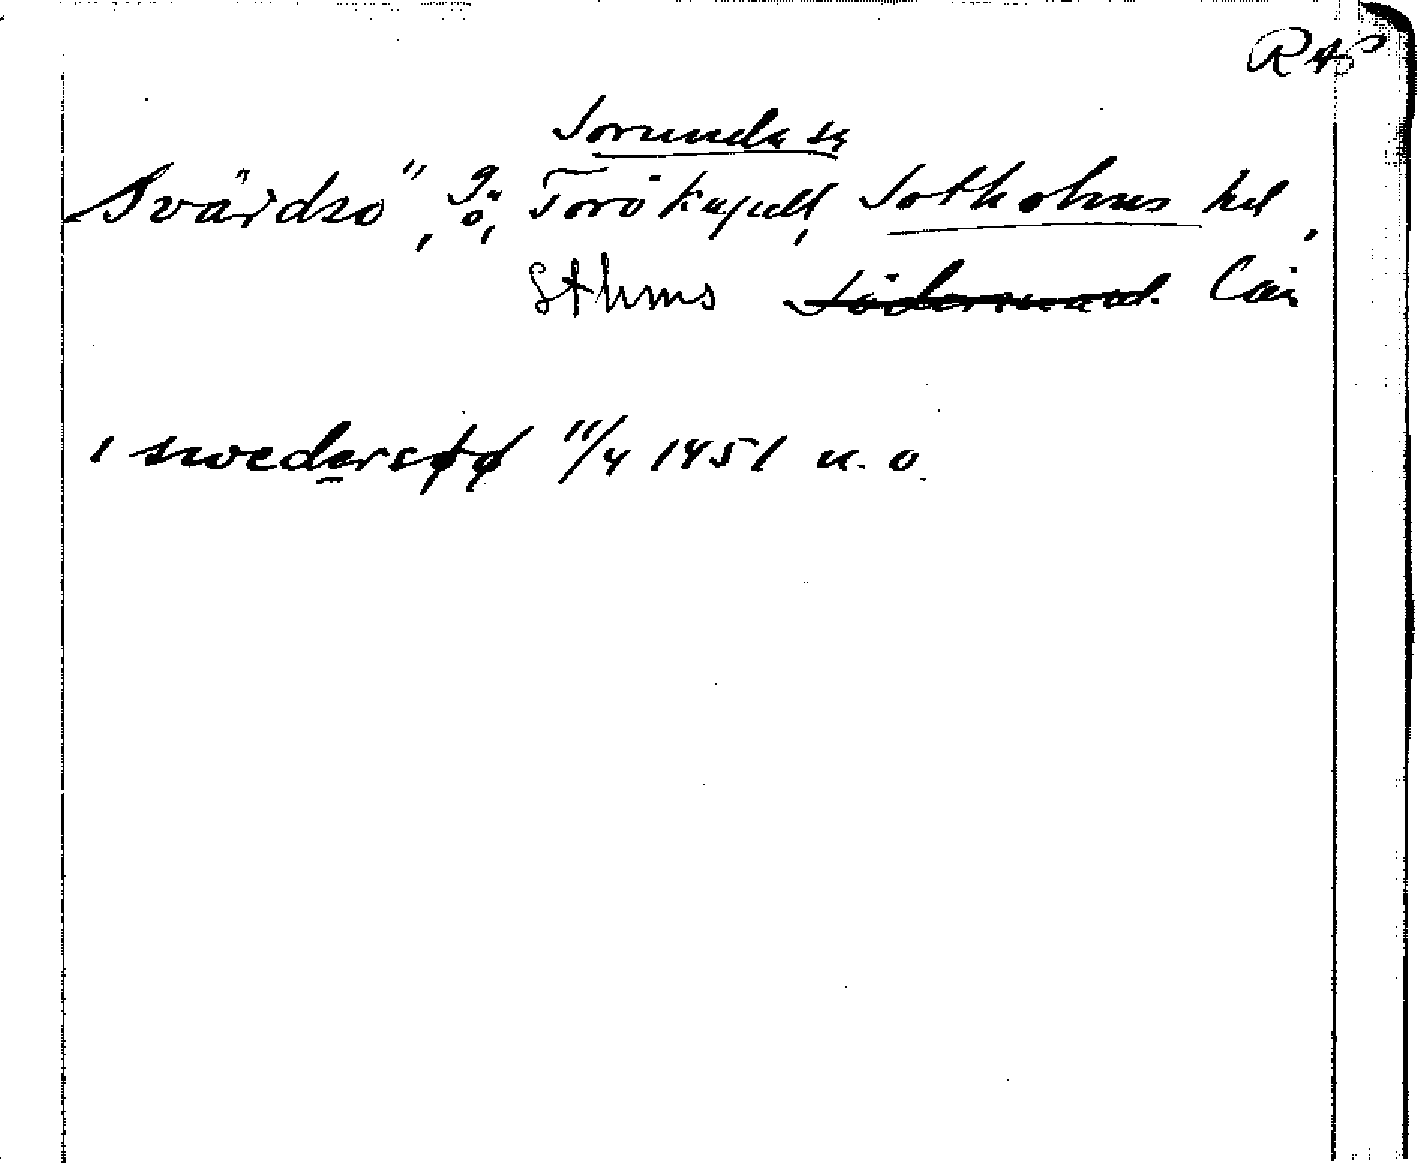 RAP
Sorunda sn
Svärdsö, Torö kapell, Sotholms hd,
Sthms Södermanl. län
i swedersøø 11/4 1451 u. o.